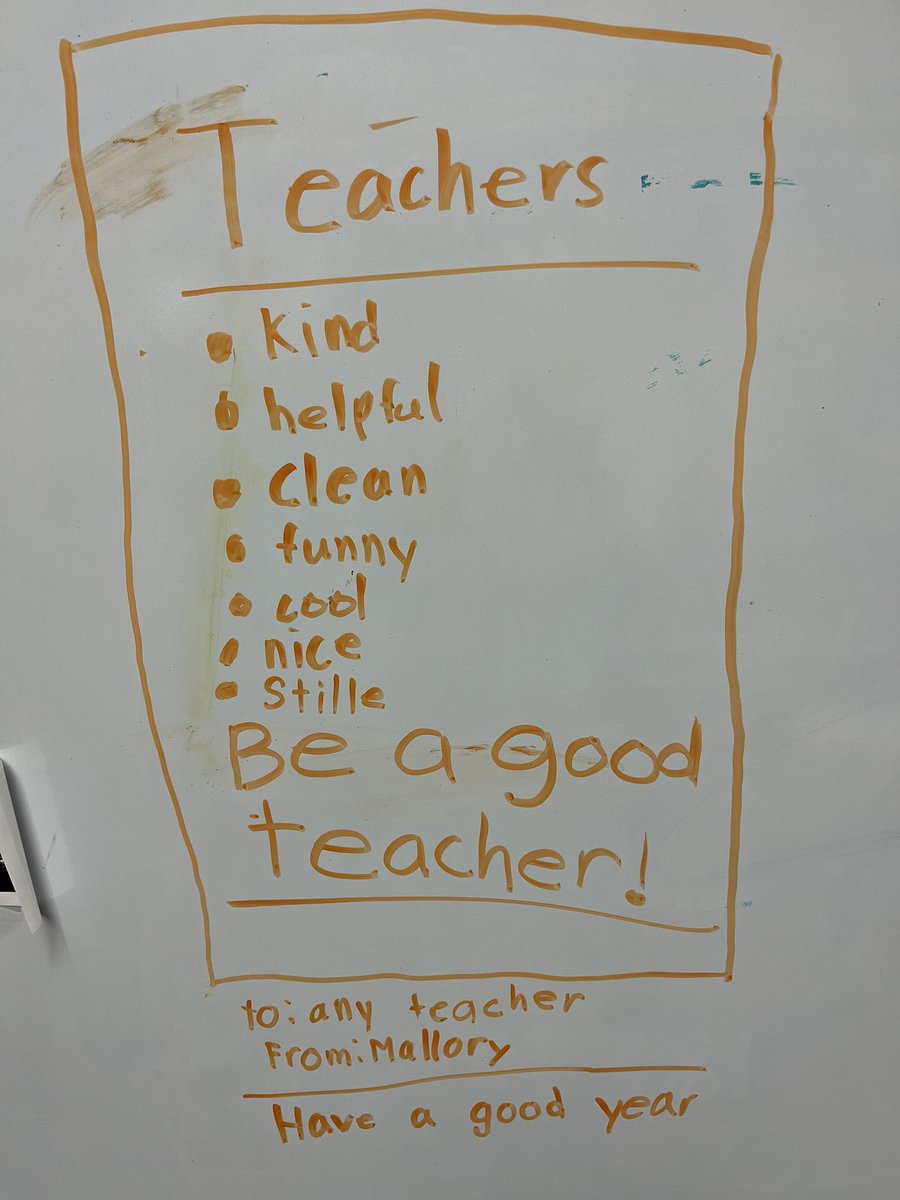 Teachers
• Kind
• helpful
• clean
• funny
• cool
• nice
• Stille
Be a good
teacher!
to: any teacher
From: Mallory
Have a good year